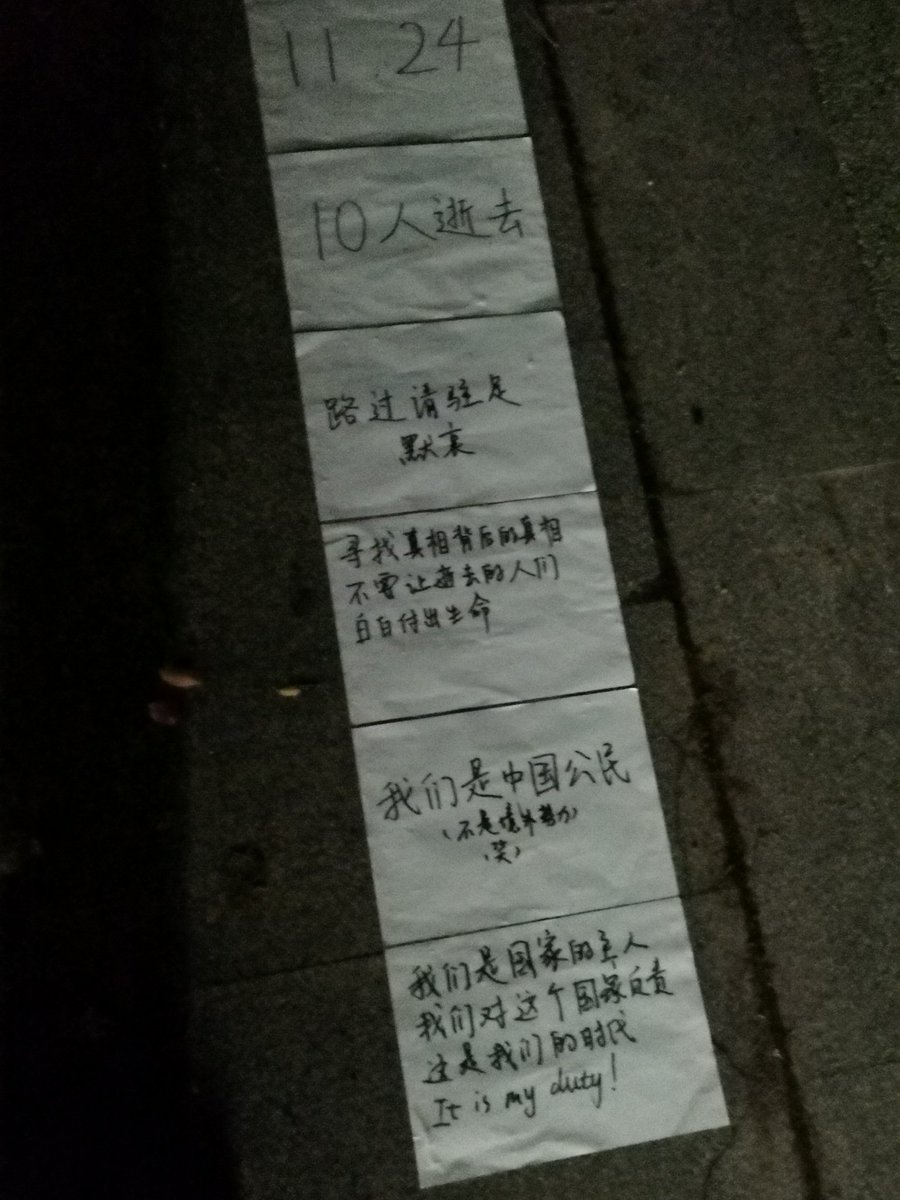 11.24
10人逝去
路过请驻足
默哀
寻找真相背后的真相
不要让逝去的人们
白白付出生命
我们是中国公民
(不是境外势力)
(笑)
我们是国家的主人
我们对这个国家负责
这是我们的时代
It is my duty!